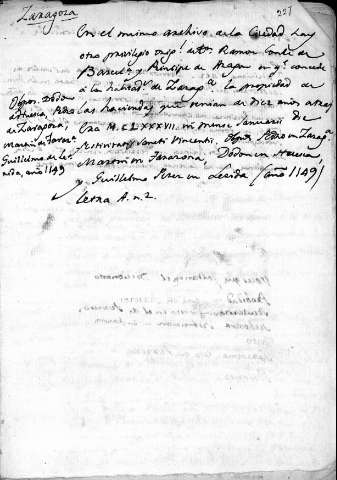 Zaragoza
227
En el mismo archivo de la Ciudad hay
otro privilegio orig.l de Dn Ramon Conde de
Barcel.a y Principe de Aragon en q.e concede
á la de Zarag.a la propiedad de
las haciendas que tenian de diez años atras
Era M.CLXXXVII. in mense Januarii die
festivitatis Sancti Vincentii. Obpos. Pedro en Zarag.a
Martin en Tarazona, Dodon en Huesca,
y Guillelmo Perez en Lerida (año 1149)
Letra A. n. 2.
Obpos. Dodon
de Huesca, Pedro
de Zaragoza,
Martin de Taraz.a
Guillelmo de Le-
rida, año 1149